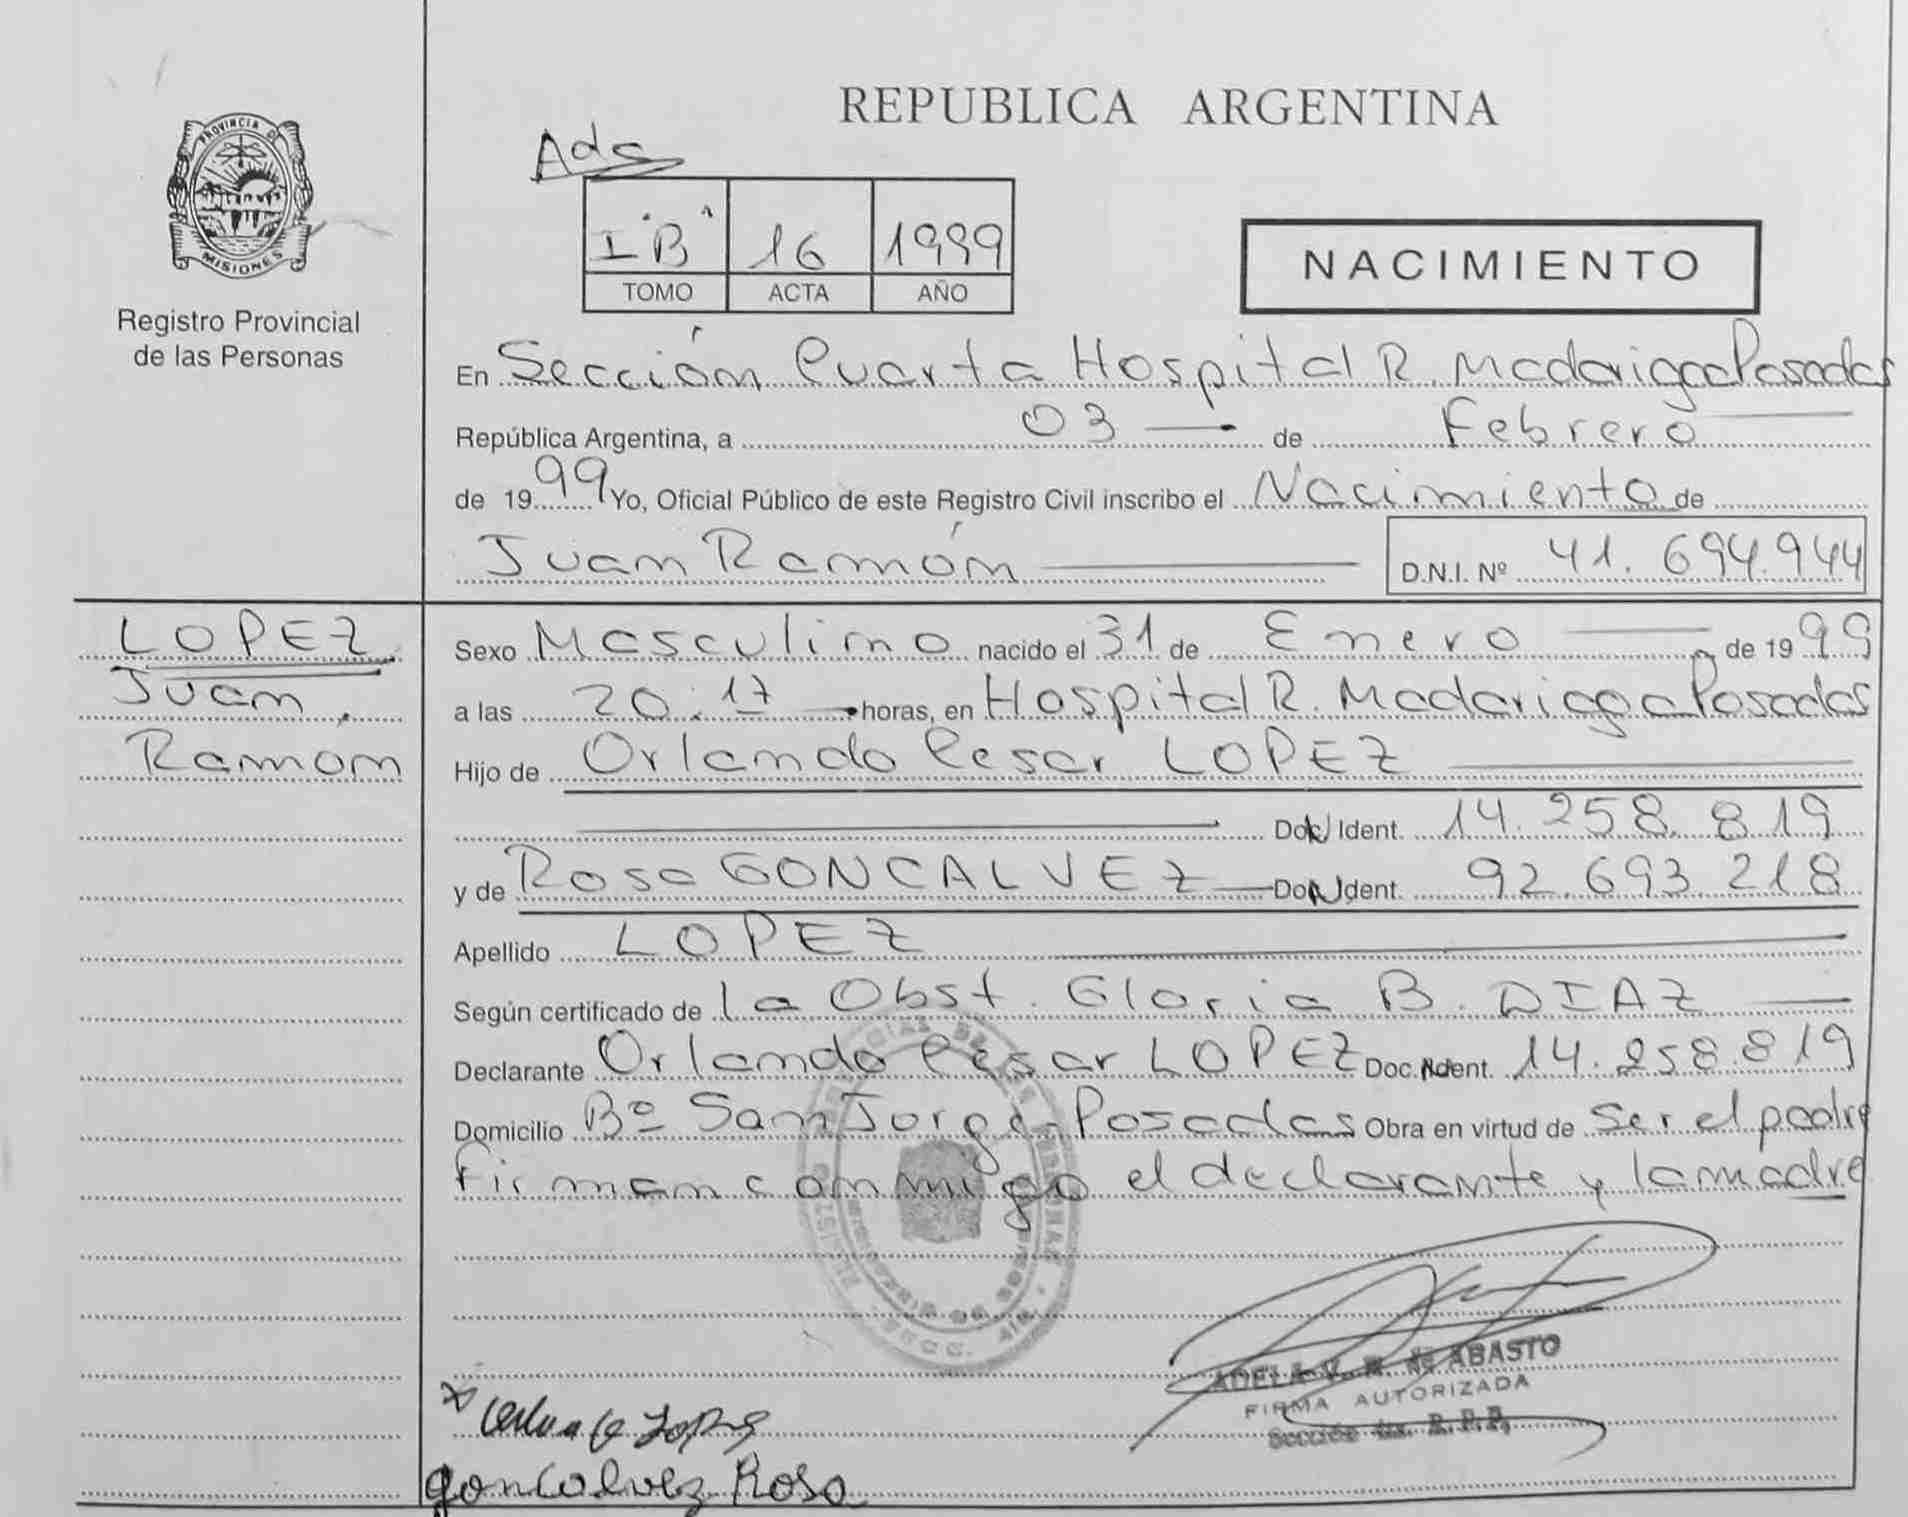 REPUBLICA ARGENTINA
PROVINCIA D
MISIONES
Registro Provincial
de las Personas
Ads
I "B" 16 1999
TOMO ACTA AÑO
NACIMIENTO
En Sección Cuarta Hospital R. Madariaga Posadas
República Argentina, a 03 de Febrero
de 1999 Yo, Oficial Público de este Registro Civil inscribo el Nacimiento de
Juan Ramón D.N.I. Nº 41.694.944
LOPEZ
Juan
Ramón
Sexo Masculino nacido el 31 de Enero de 1999
a las 20:17 horas, en Hospital R. Madariaga Posadas
Hijo de Orlando Cesar LOPEZ
Doc. Ident. 14.258.819
y de Rosa GONCALVEZ Doc. Ident. 92.693.218
Apellido LOPEZ
Según certificado de la Obst. Gloria B. DIAZ
Declarante Orlando Cesar LOPEZ Doc. Ident. 14.258.819
Domicilio Bº San Jorge - Posadas Obra en virtud de Ser el padre
firman conmigo el declarante y la madre
ADELA V. de ABASTO
FIRMA AUTORIZADA
Sección R.P.P.
Lopez
Goncalvez Rosa